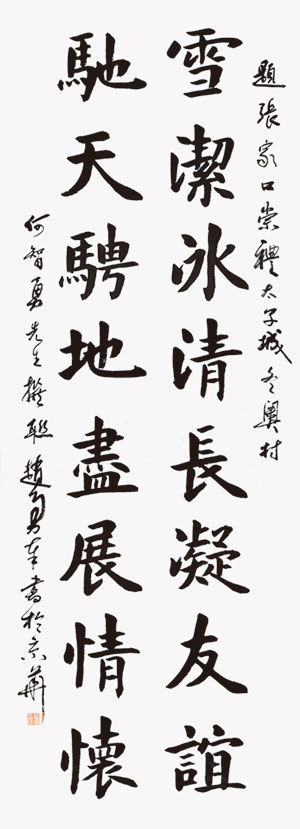 題張家口崇禮太子城冬奧村
雪潔冰清長凝友誼
馳天騁地盡展情懷
何智勇先生撰聯趙書於京華